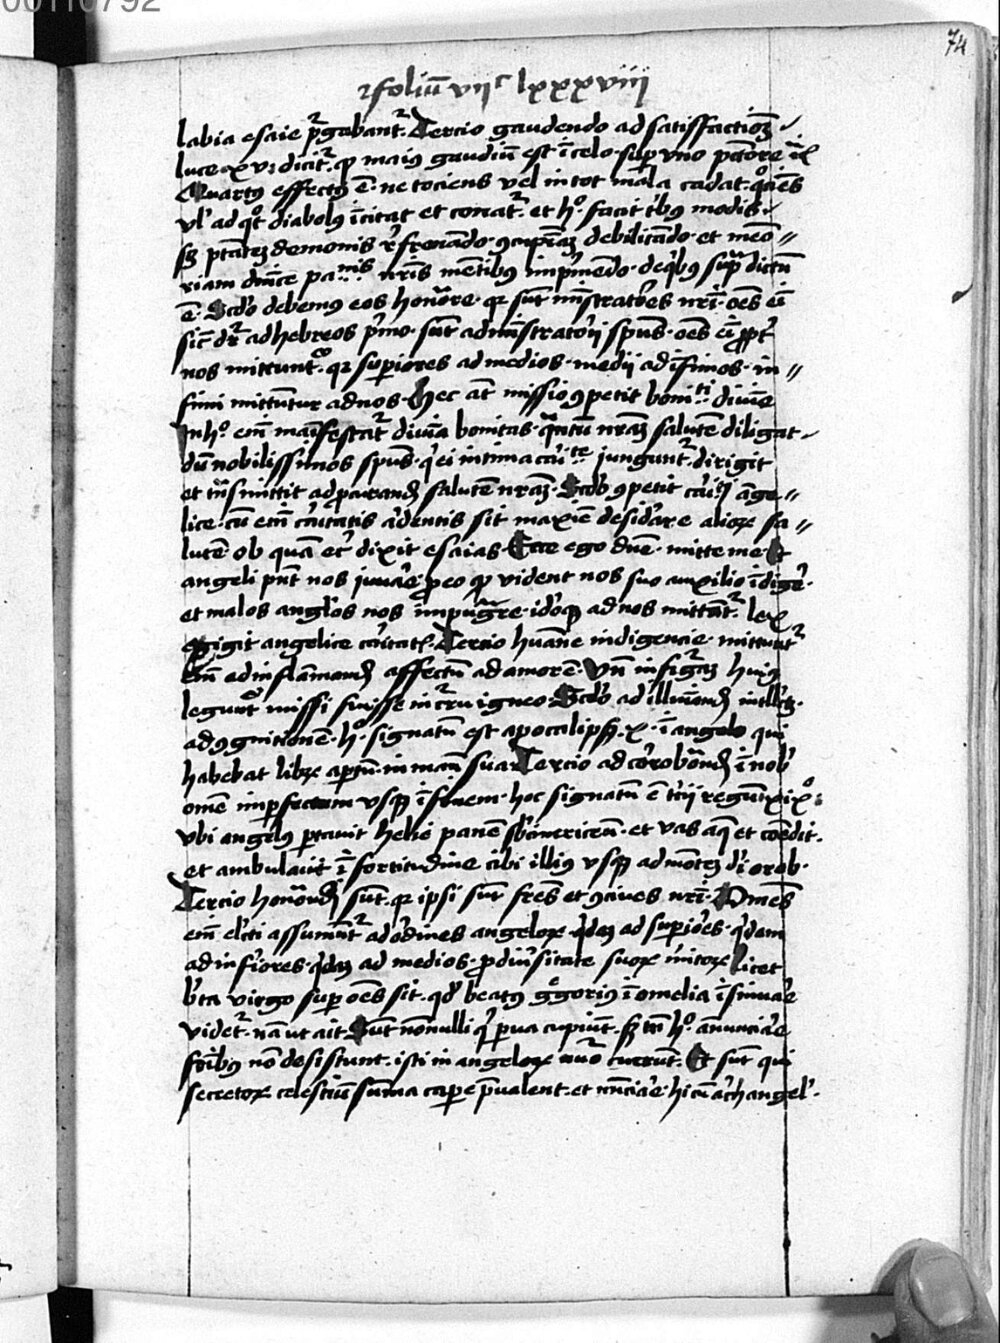 00110792
74
foliū vijc lxxxviij
labia esaie p̄gabant᷑. Tercio gaudendo ad satisfactiōꝫ
luce xv: dicit᷑. qꝫ maius gaudiū est ī celo sup vno pctōre
Quartus effectus ē. ne tociens vel in tot mala cadat. qͦciēs
vl' ad qͦt diabolus īcitat et conat᷑. et hͦ. facit tribꝰ modis.
sꝫ ptātem demonis refrenādo. ꝯcupīaꝫ debilitādo. et memo
riam dn̄ice passionis nr̄is mētibꝰ imp̄mēdo. de qͥbꝰ sup dictū
ē. Scdo debemus eos honorare. qꝛ sunt mīstratores nr̄i. oēs ei
sīc dr̄ ad hebreos pͥmo. sunt admīstratorij spūs. oēs eī ꝓpt
nos mittunt᷑. qꝛ superiores ad medios. medij ad īfimos. in
fimi mittuntur ad nos. Hec āt missio ꝯpetit boni ti diuīe
In hͦ. em̄ maīfestat᷑ diuīa bonitas. qͣntū nr̄aꝫ salutē diligat
dū nobilissimos spūs. qͥ ei intima cari te iungunt᷑. dirigit
et trāsmittit ad parandā salutē nr̄aꝫ. Scdo ꝯpetit caritati ange
lice. cū em̄ caritatis ardentis sit maxīe desiderare alioꝝ sa
lutē. ob quā et dixit esaias. Ecce ego dn̄e. mitte me. Et
angeli pn̄t nos iuuare. ꝓ eo qꝫ vident nos suo auxilio īdigē.
et malos angelos nos impugnare. idͦqꝫ ad nos mittūt᷑. lex
exigit angelice caritatis. Tercio humane indigencie. mittunt᷑
em̄ ad inflāmandū affectū ad amorē. Vn̄ in figuraꝫ huiꝰ
legunt᷑ missi fuisse in curru igneo. Scdo ad illuīandū intllc̄m.
ad ꝯgnitionē. hͦ. signatū est apocalips. x. ī angelo qui
habebat librꝫ aptū. in manu sua. Tercio ad corroborandū ī nob'
omē imperfectum vsqꝫ ī finem. hoc signatū ē tercij regū xixͦ:
vbi angelus portauit helie panē sbcinericeū. et vas aq̄ et comedit.
et ambulauit ī fortitudine cibi illius vsqꝫ ad montem di orob.
Tercio honorandi sunt. qꝛ ipsi sunt frēs et ꝯciues nr̄i. Omēs
em̄ electi assumunt᷑ ad ordines angeloꝝ qͥdaꝫ ad superiores. qͥdem
ad inferiores. qͥdaꝫ ad medios. ꝓ diuersitate suoꝝ meritoꝝ Licet
bt̄a virgo super oēs sit. qd' beatus gregorius ī omelia īsinuare
videt᷑. nā ut ait. Sunt nōnulli qͥ parua capiūt. sꝫ tn̄ hͦ. annunciare
fratribꝰ nō desistunt. isti in angeloꝝ numero currunt. Et sunt qui
secretoꝝ celestiū summa capere preualent. et nūciare. hi cū archangel'.